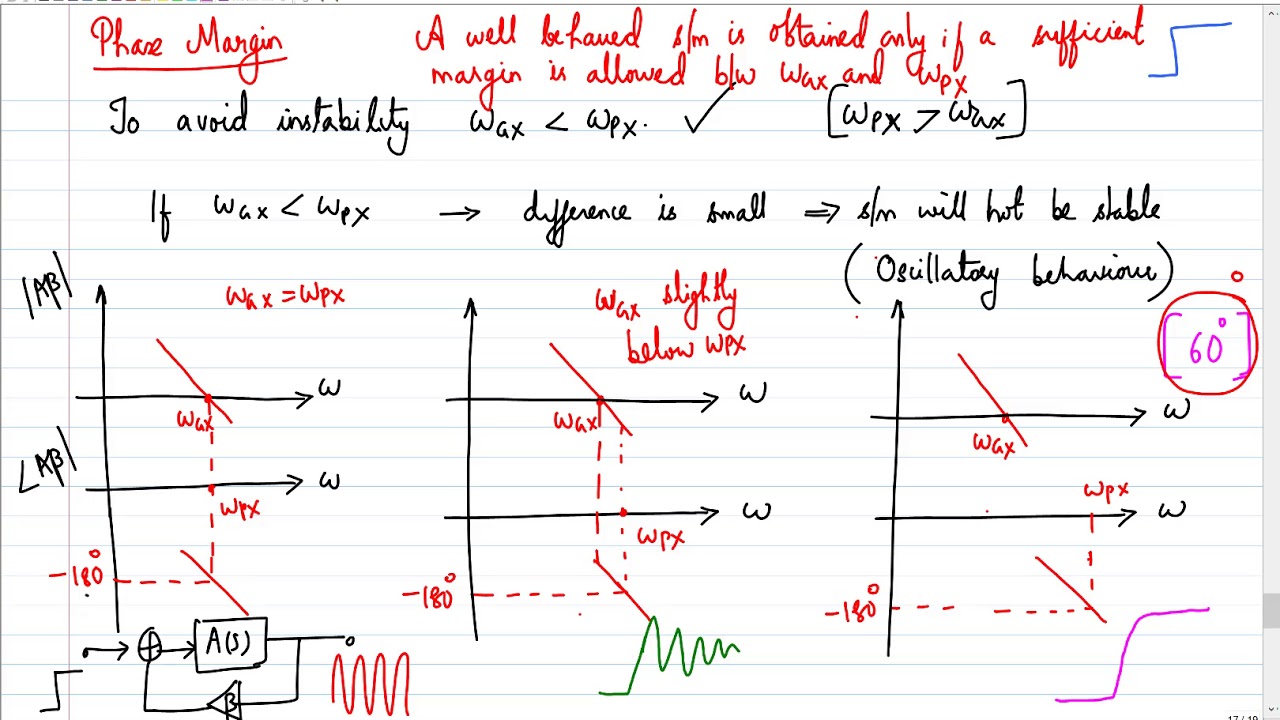 Phase Margin
A well behaved s/m is obtained only if a sufficient
margin is allowed b/w ωax and ωpx
To avoid instability ωax < ωpx. ✓ [ωpx > ωax]
If ωax < ωpx → difference is small ⇒ s/m will not be stable
(Oscillatory behaviour)
|Aβ|
ωax = ωpx
ωax slightly
below ωpx
[60°]
ω
ωax
ω
ωax
ω
ωax
∠Aβ|
ω
ωpx
ω
ωpx
ωpx
ω
-180°
-180°
-180°
A(s)
β
17 / 19